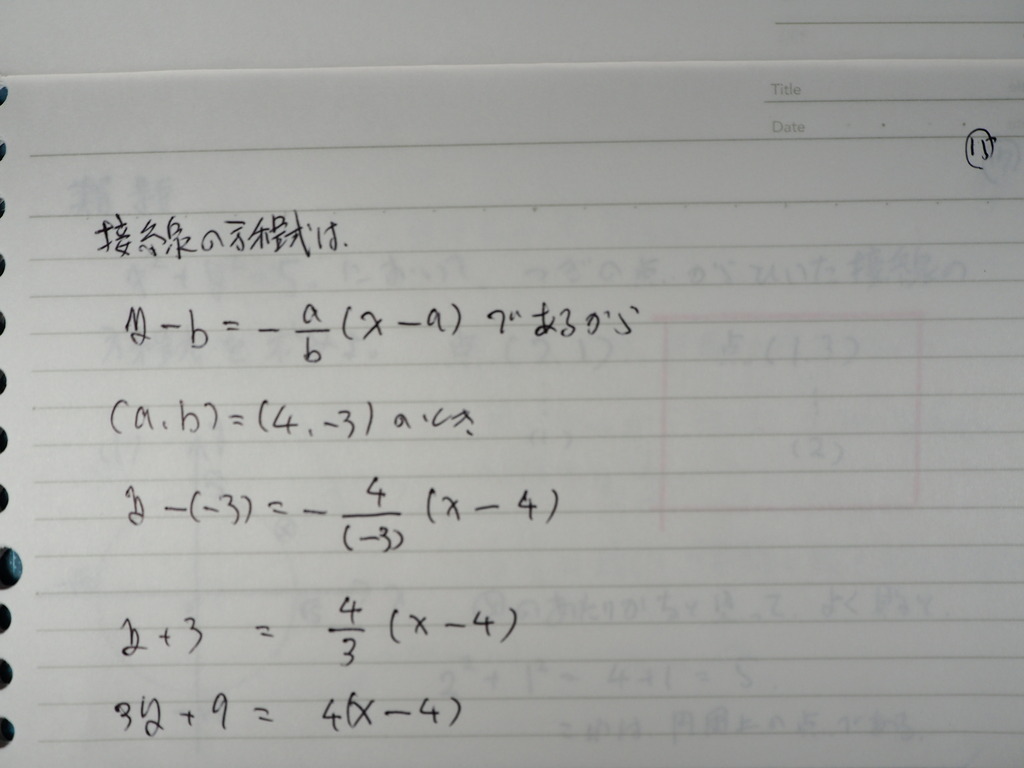 Title
Date
⑮
接線の方程式は、
y - b = - a/b (x - a) であるから
(a, b) = (4, -3) のとき
y - (-3) = - 4/(-3) (x - 4)
y + 3 = 4/3 (x - 4)
3y + 9 = 4(x - 4)